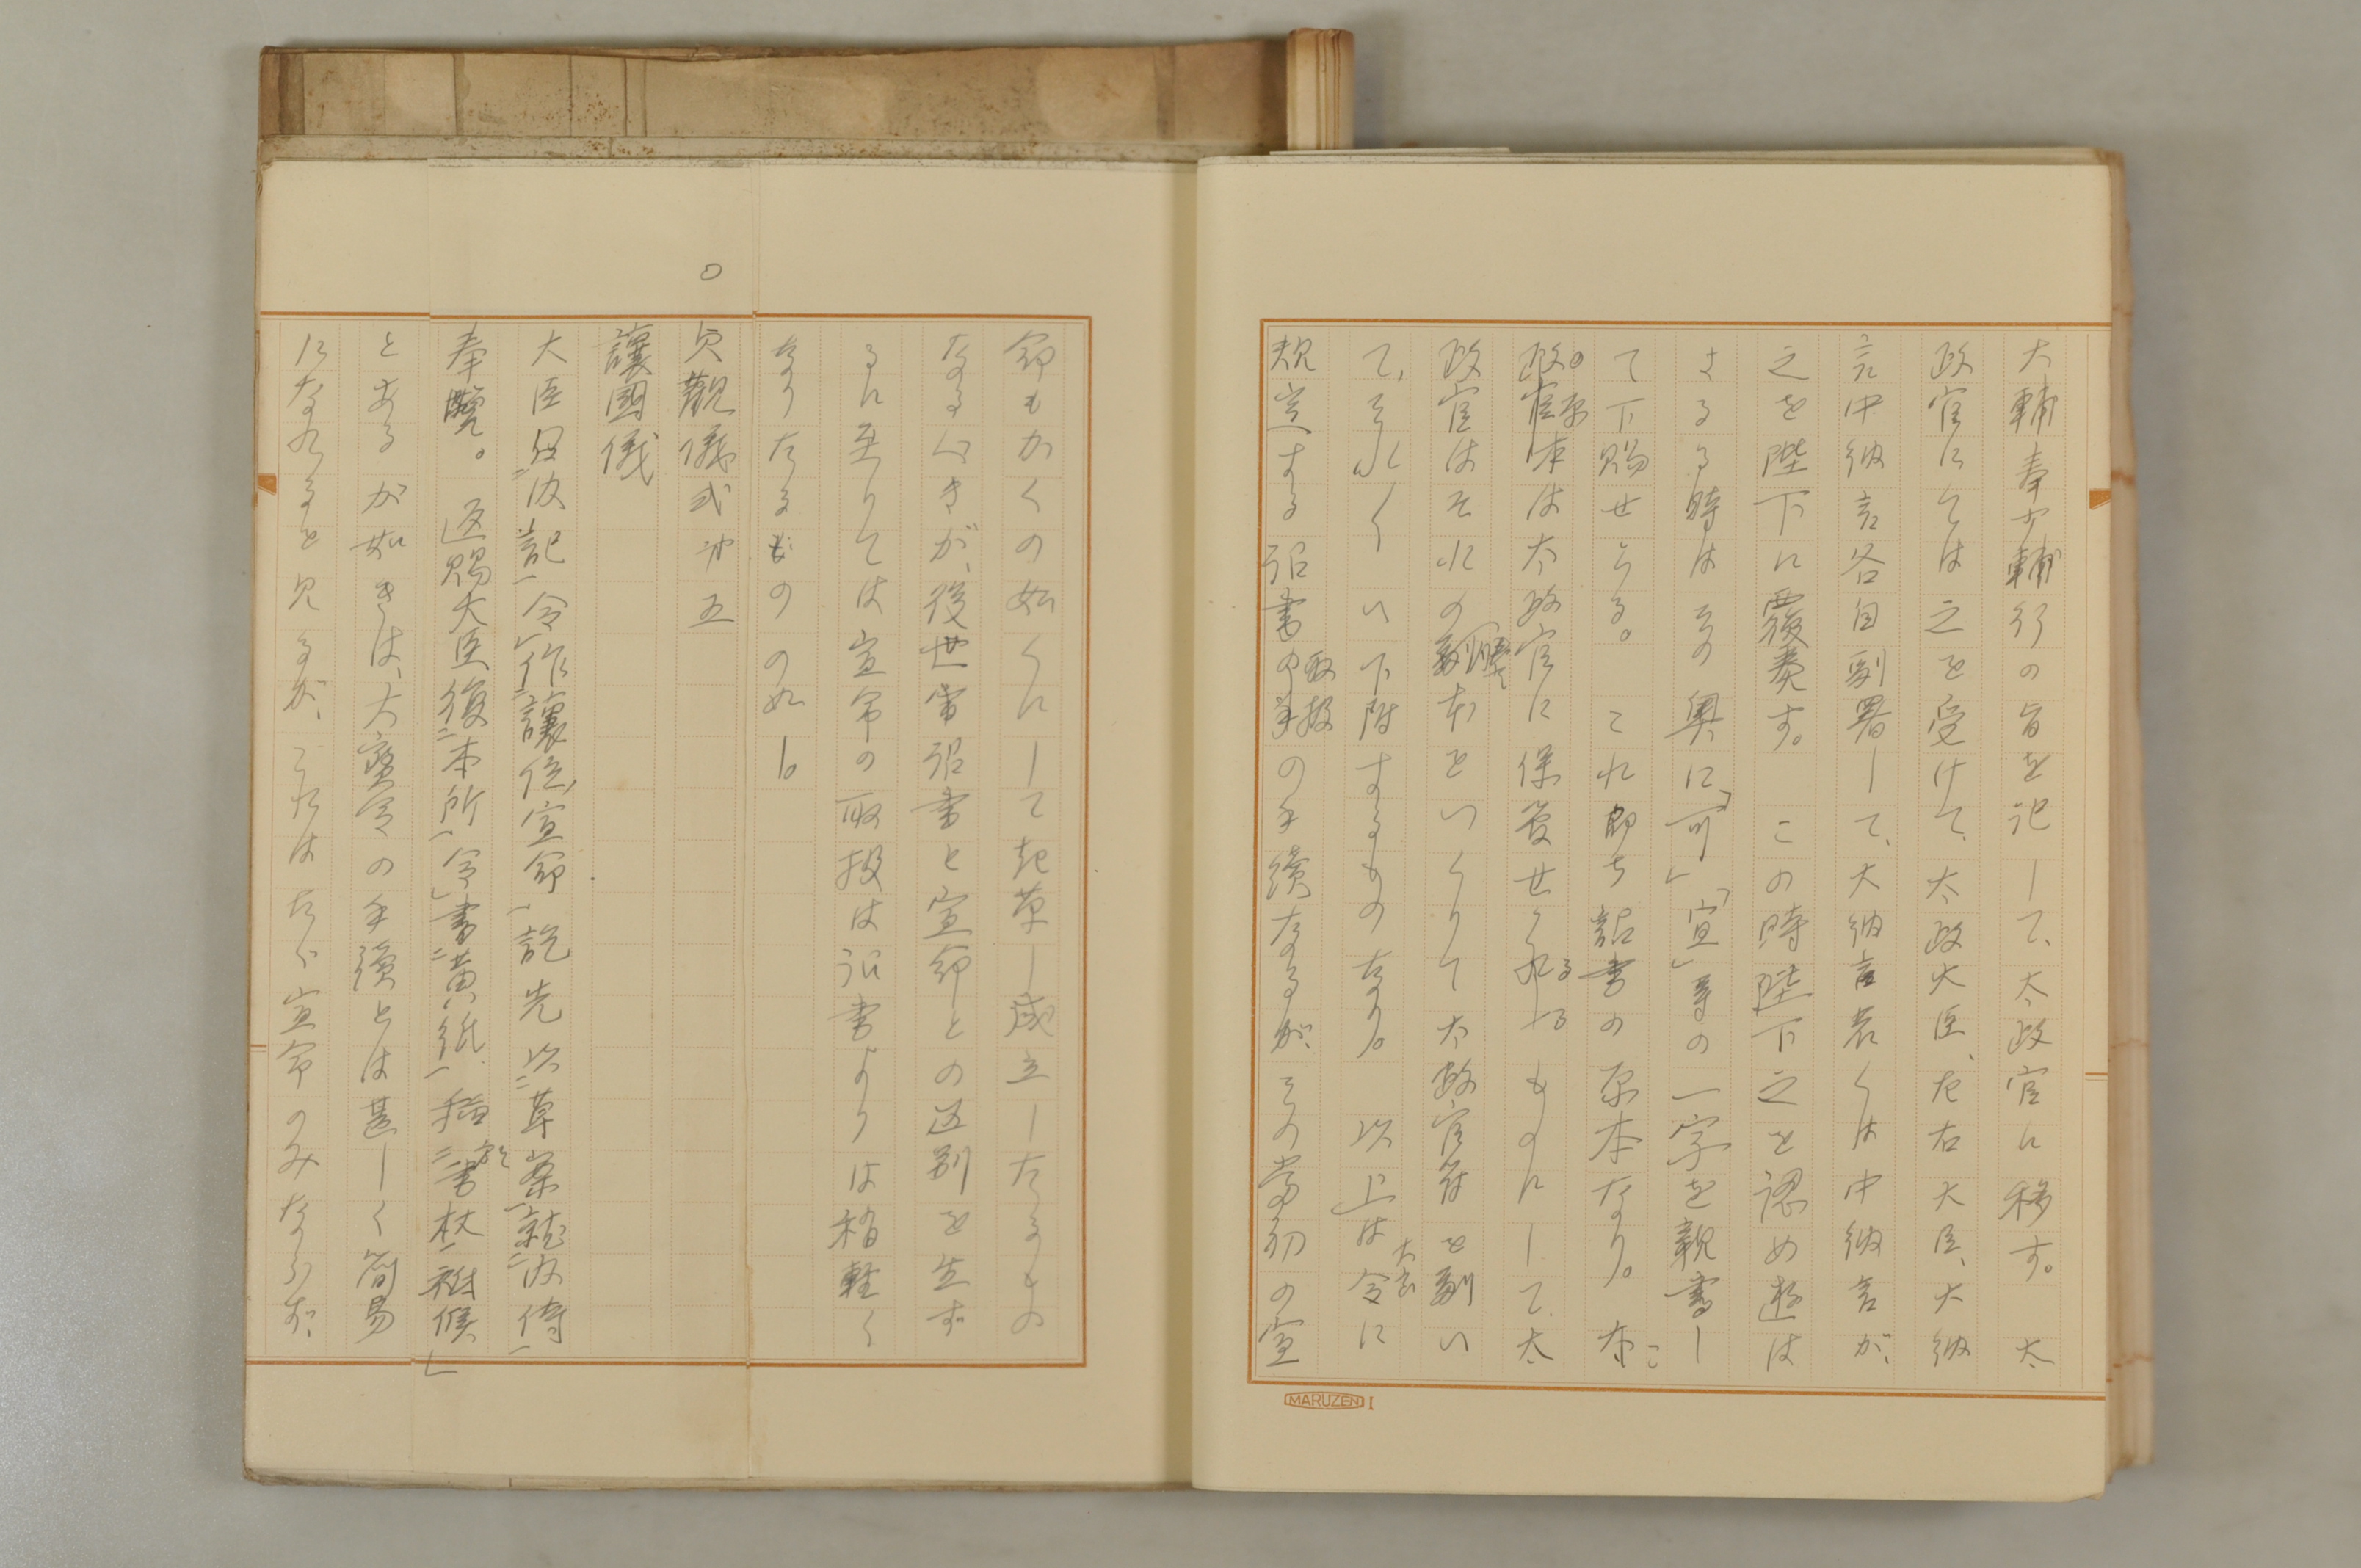 大輔奉少輔行の旨を記して、太政官に移す。太
政官にては之を受けて、太政大臣、左右大臣、大納
言中納言各自副署して、大納言若くは中納言が、
之を陛下に覆奏す。この時陛下之を認め遊は
さるる時は その奥に「可」「宣」等の一字を親書し
て下賜せらる。これ即ち詔書の原本なり。こ
の原本は太政官に保管せらるるものにして、太
政官はそれの副本をいくりて太政官符を副い
て、それ〱い下附するものなり。以上は大宝令に
規定する詔書の取扱の手続なるが、その当初の宣
命もかくの如くにして起草し成立したるもの
なるべきが、後世常詔書と宣命との区別を生ず
るに至りては宣命の取扱は詔書よりは稍軽く
なりたるものの如し。
○貞観儀式 五
譲國儀
大臣 内記令作譲位宣命 訖先以草案就内侍
奉覽。返賜大臣復本所令書黄紙 挿於書杖祗候」
とあるが如きは、大寳令の手續とは甚しく簡易
になれるを見るが、これはたゞ宣命のみならず、
MARUZEN I